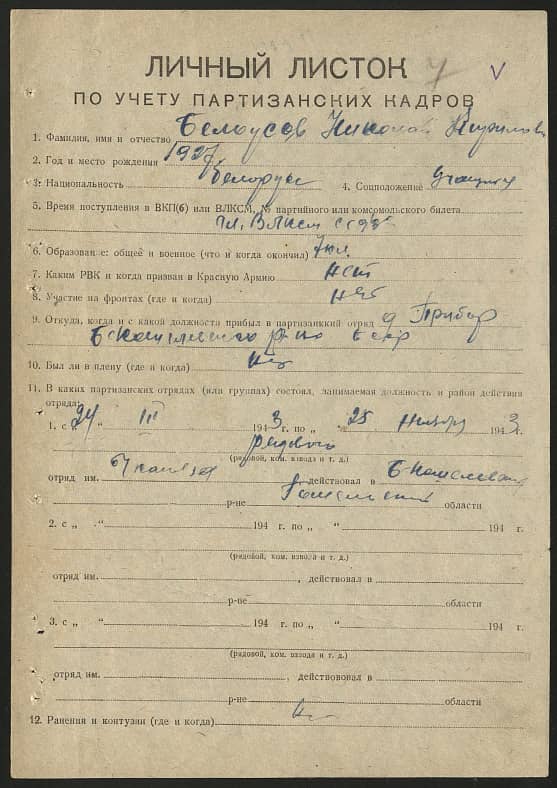 7 V
ЛИЧНЫЙ ЛИСТОК
ПО УЧЕТУ ПАРТИЗАНСКИХ КАДРОВ
1. Фамилия, имя и отчество Белоусов Николай Кирилович
2. Год и место рождения 1927
3. Национальность белорус 4. Соцположение учащийся
5. Время поступления в ВКП(б) или ВЛКСМ, № партийного или комсомольского билета
чл. ВЛКСМ с
6. Образование: общее и военное (что и когда окончил) 7 кл.
7. Каким РВК и когда призван в Красную Армию нет
8. Участие на фронтах (где и когда) нет
9. Откуда, когда и с какой должности прибыл в партизанкий отряд д Прибор
Б-Кошелевского р-на БССР
10. Был ли в плену (где и когда) нет
11. В каких партизанских отрядах (или группах) состоял, занимаемая должность и район действия
отряда:
1. с „24 “ III 1943 г. по „ 25 “ ноября 1943 г.
рядовой
(рядовой, ком. взвода и т. д.)
отряд им. Чкалова действовал в Б-Кошелевский
р-не Гомельский области
2. с „ “ 194 г. по „ “ 194 г.
(рядовой, ком. взвода и т. д.)
отряд им. , действовал в
р-не области
3. с „ “ 194 г. по „ “ 194 г.
(рядовой, ком. взвода и т. д.)
отряд им. , действовал в
р-не области
12. Ранения и контузии (где и когда) нет